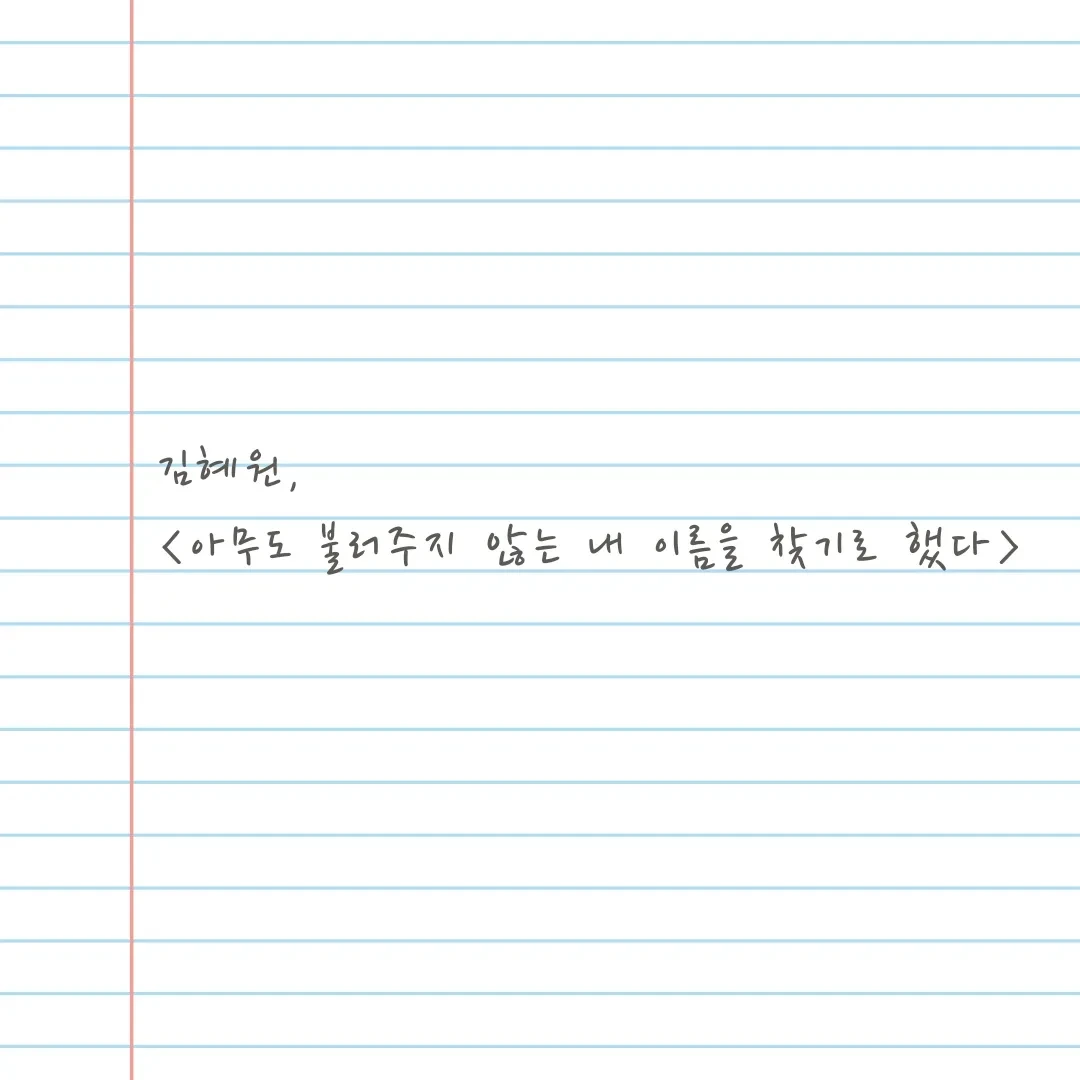 김혜원,
<아무도 불러주지 않는 내 이름을 찾기로 했다>